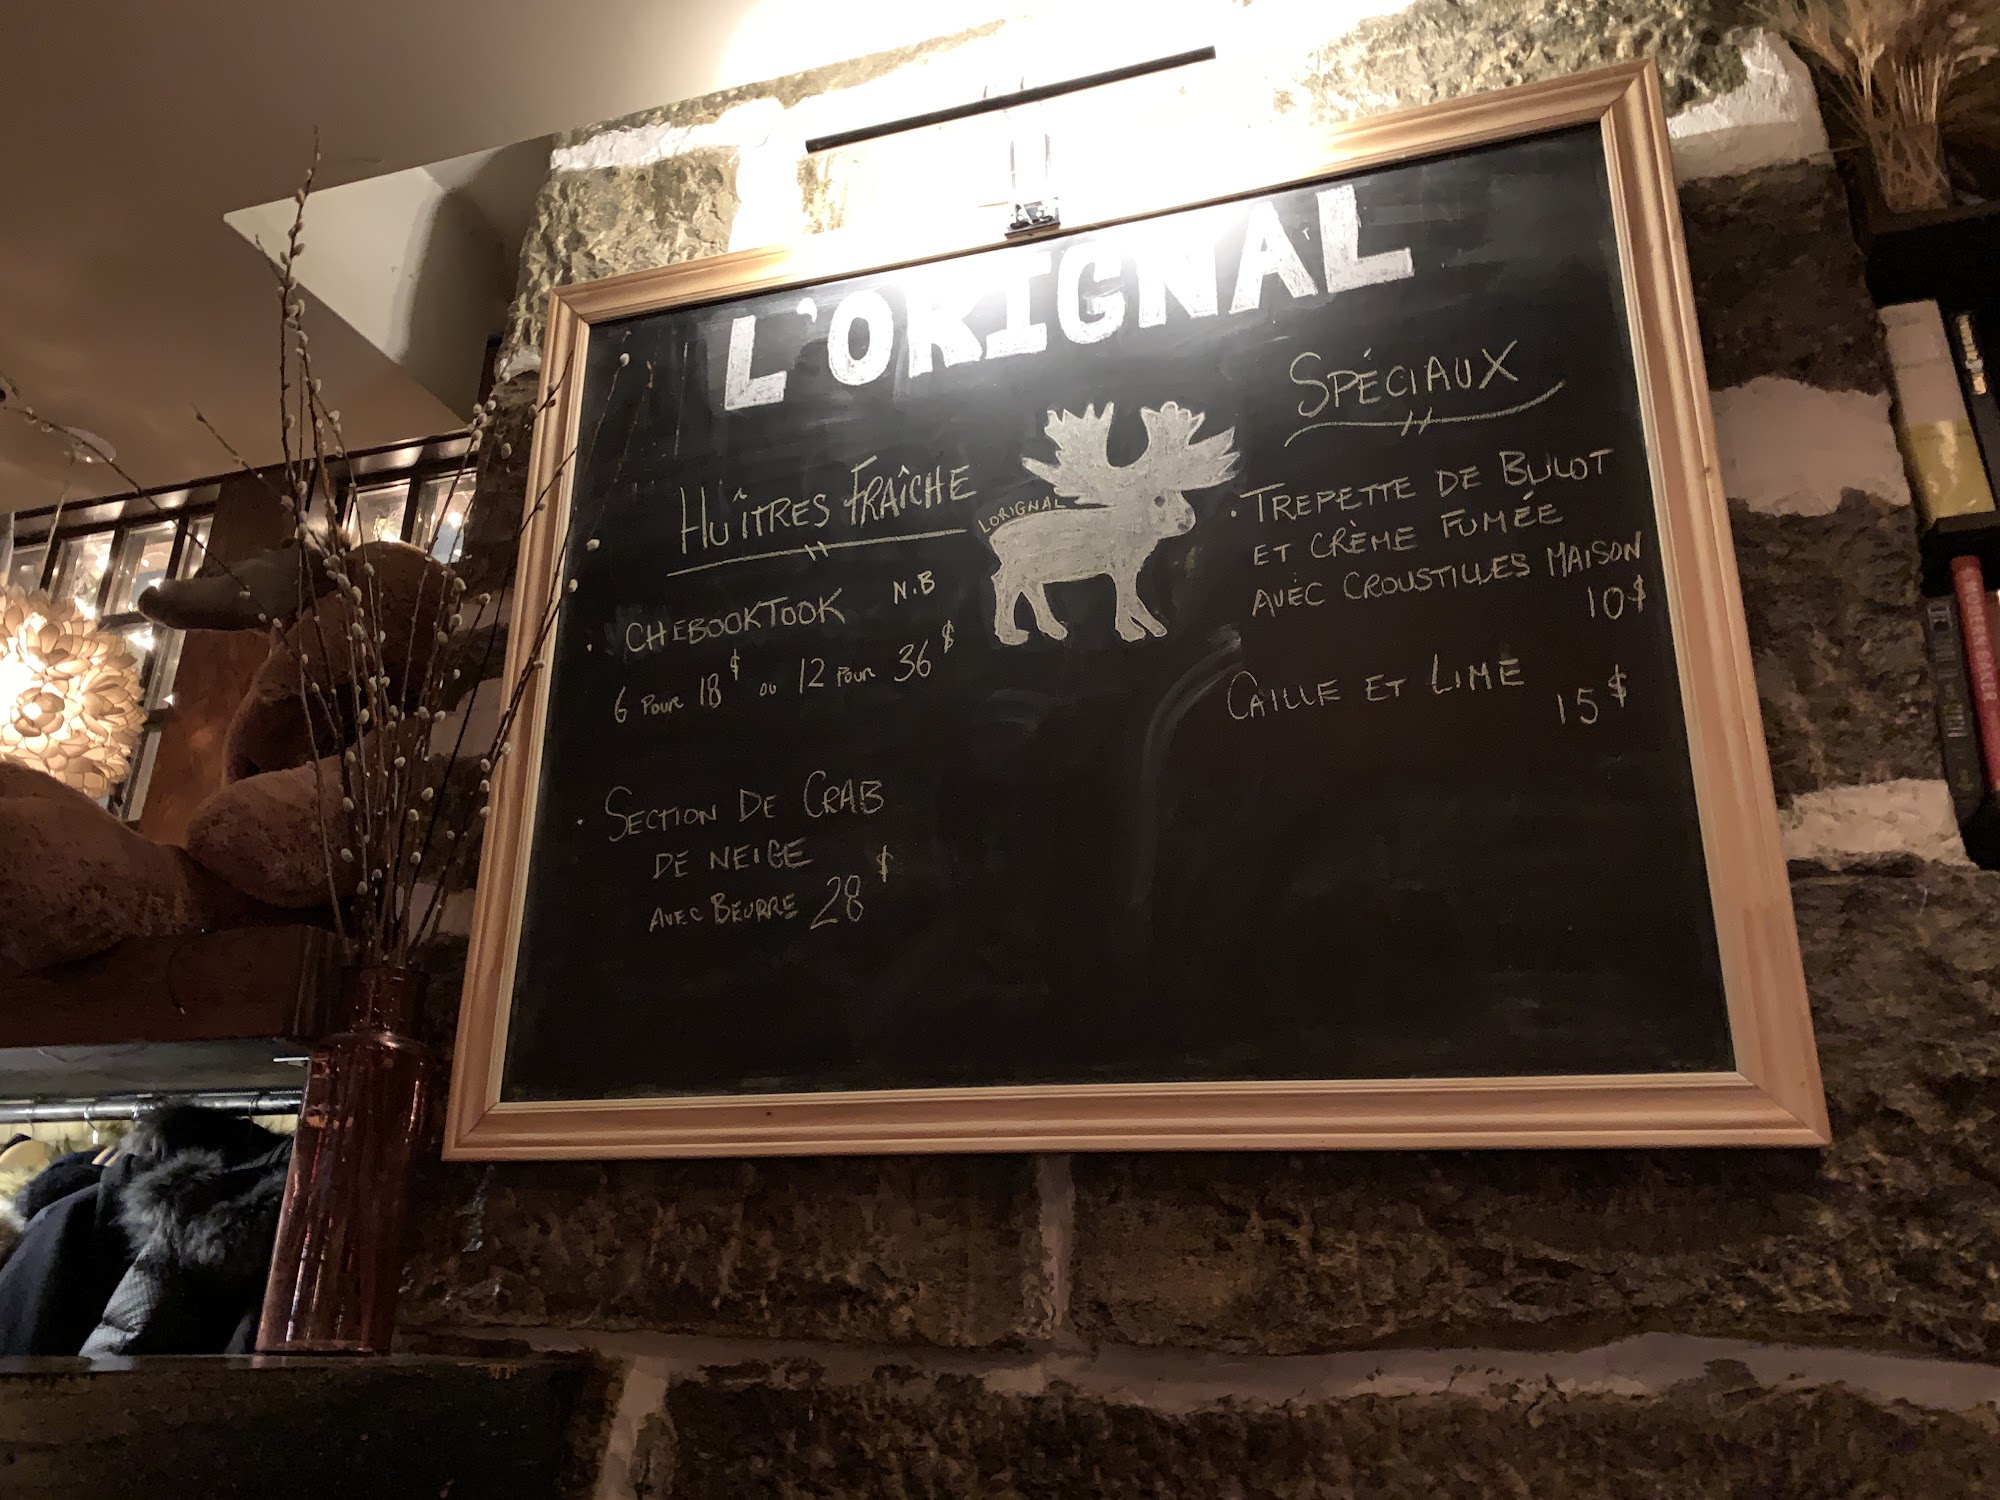 L'ORIGNAL
HUÎTRES FRAÎCHE
• CHEBOOKTOOK N.B
6 POUR 18$ OU 12 POUR 36$
• SECTION DE CRAB
DE NEIGE
AVEC BEURRE 28$
LORIGNAL
SPÉCIAUX
• TREPETTE DE BULOT
ET CRÈME FUMÉE
AVEC CROUSTILLES MAISON
10$
CAILLE ET LIME
15$